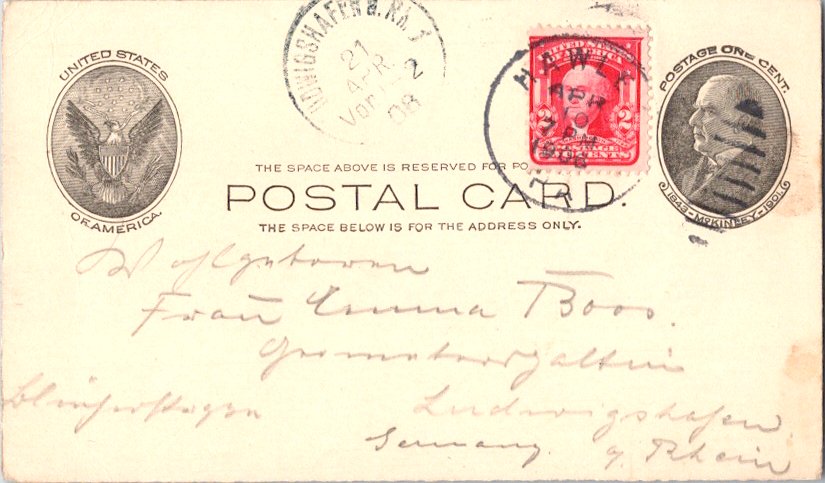 UNITED STATES
OF AMERICA.
LUDWIGSHAFEN a. RH. 1
21
APR
Vorm
2
08
UNITED STATES
OF AMERICA
2 2
CENTS
HAWLEY
APR
10
7 PM
1908
POSTAGE ONE CENT.
1843-McKINLEY-1901.
THE SPACE ABOVE IS RESERVED FOR PO
POSTAL CARD.
THE SPACE BELOW IS FOR THE ADDRESS ONLY.
Wohlgeboren
Frau Emma Boos.
Geometersgattin
Ludwigshafen
Germany a. Rhein